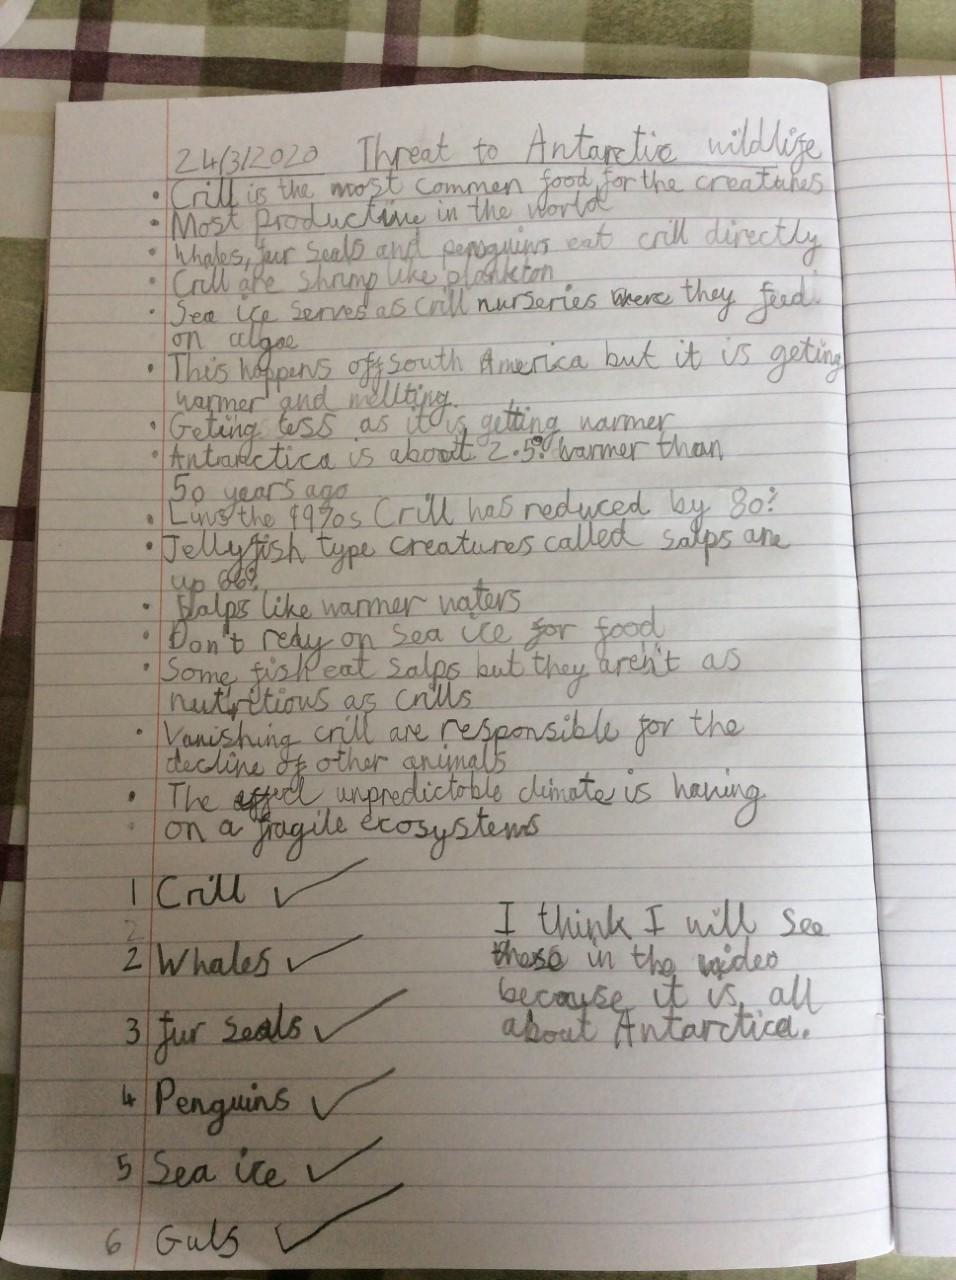 24/3/2020 Threat to Antarctic wildlife
• Crill is the most commen food for the creatures
• Most Productive in the world
• Whales, fur Seals and penguins eat crill directly
• Crill are Shrimp like plankton
• Sea ice serves as Crill nurseries where they feed
on algae
• This happens off south America but it is geting
warmer and mellting.
• Geting less as it is getting warmer
• Antarctica is about 2.5° warmer than
50 years ago
• the 1970s Crill has reduced by 80%
• Jellyfish type creatures called salps are
up 66%
• Salps like warmer waters
• Don't redy on sea ice for food
• Some fish eat salps but they aren't as
nutiritious as crills
• Vanishing crill are responsible for the
decline of other animals
• The unpredictable climate is having
on a fragile ecosystems
1 Crill ✓
2
2 Whales ✓
3 fur seals ✓
4 Penguins ✓
5 Sea ice ✓
6 Guls ✓
I think I will see
these in the video
because it is all
about Antarctica.